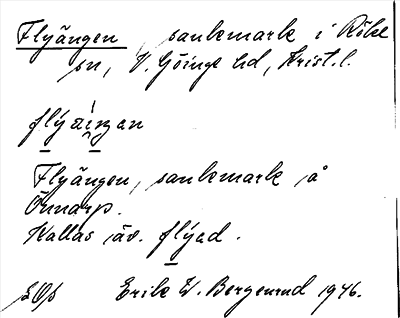 Flyängen, sankmark i Röke
sn, V. Göinge hd, Krist. l.
Flyängen, sankmark på
Önnarp.
Kallas äv. flyed.
Erik W. Bergenrud 1946.